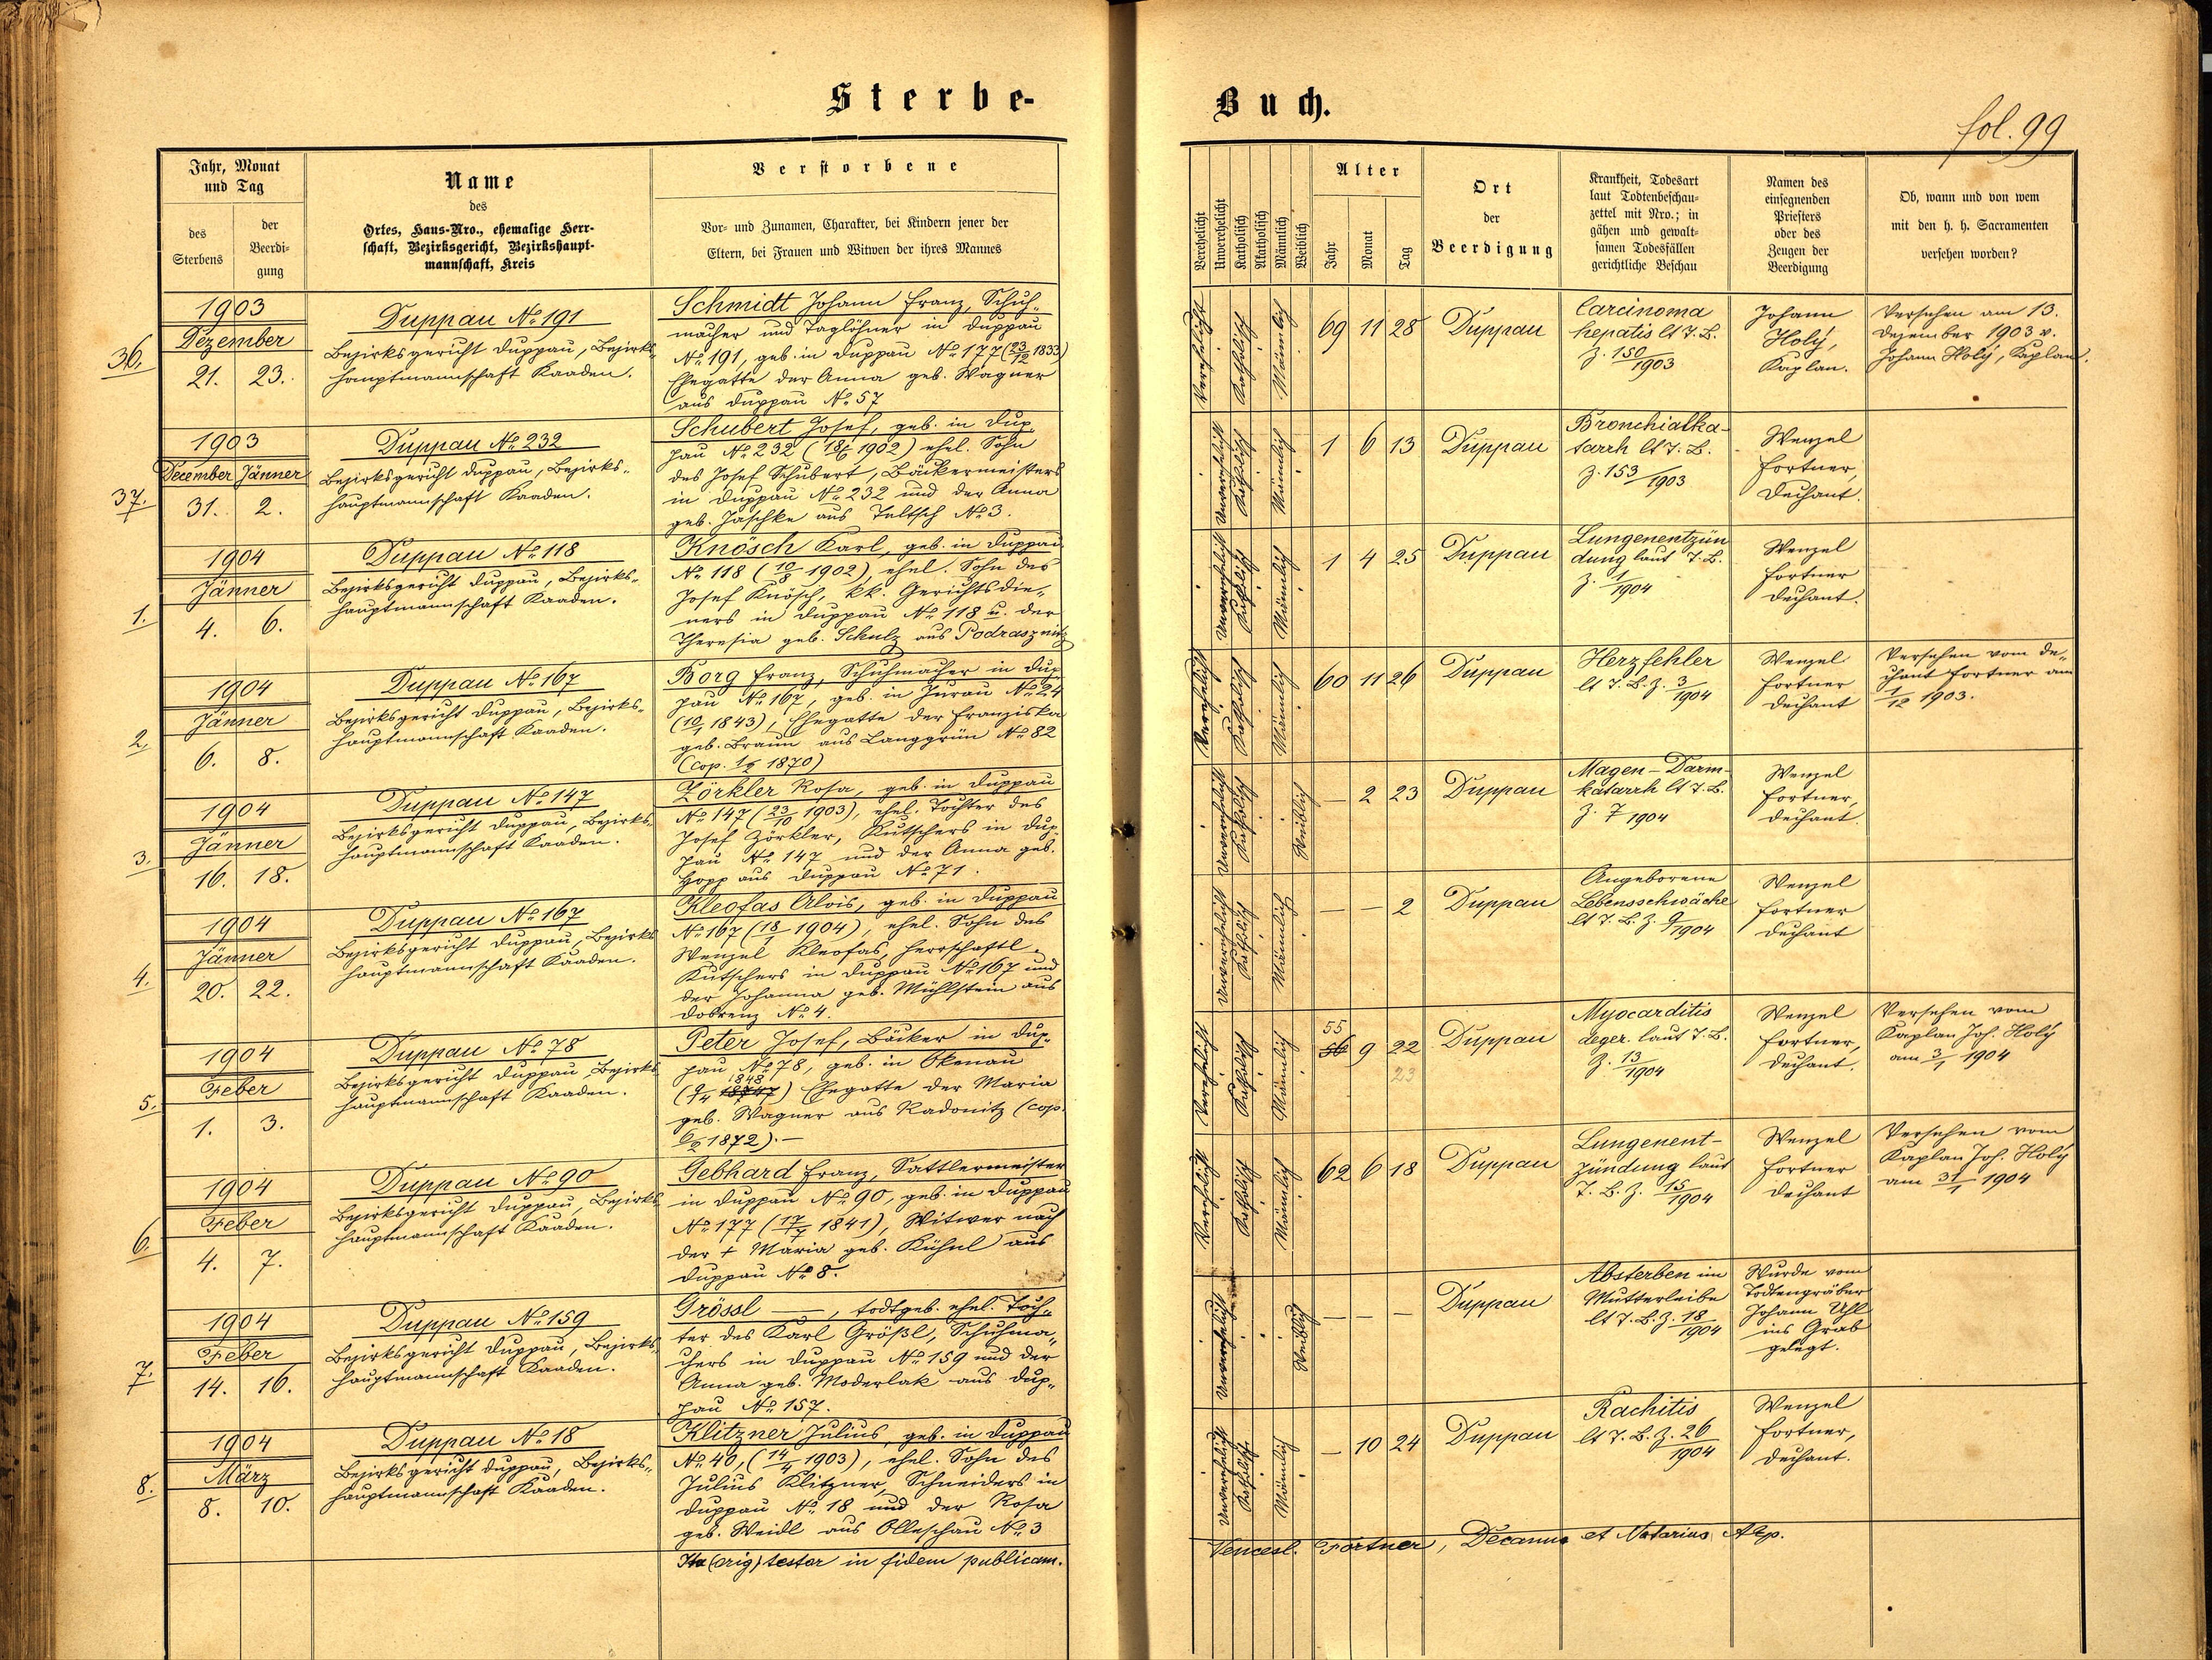 Sterbe-
Buch.
fol. 99
Jahr, Monat
und Tag
des
Sterbens
der
Beerdi-
gung
Name
des
Ortes, Haus-Nro., ehemalige Herr-
schaft, Bezirksgericht, Bezirkshaupt-
mannschaft, Kreis
Verstorbene
Vor- und Zunamen, Charakter, bei Kindern jener der
Eltern, bei Frauen und Witwen der ihres Mannes
Verehelicht
Unverehelicht
Katholisch
Akatholisch
Männlich
Weiblich
Alter
Jahr
Monat
Tag
Ort
der
Beerdigung
Krankheit, Todesart
laut Todtenbeschau-
zettel mit Nro.; in
gähen und gewalt-
samen Todesfällen
gerichtliche Beschau
Namen des
einsegnenden
Priesters
oder des
Zeugen der
Beerdigung
Ob, wann und von wem
mit den h. h. Sacramenten
versehen worden?
36.
1903
Dezember
21. 23.
Duppau № 191
Bezirksgericht Duppau, Bezirks-
hauptmannschaft Kaaden.
Schmidt Johann Franz, Schuh-
macher und Taglöhner in Duppau
№ 191, geb. in Duppau № 177 (23/12 1833)
Ehegatte der Anna geb. Wagner
aus Duppau № 57
Verehelicht
Katholisch
Männlich
69 11 28
Duppau
Carcinoma
hepatis lt T. B.
Z. 150/1903
Johann
Holý,
Kaplan.
Versehen am 13.
Dezember 1903 v.
Johann Holý, Kaplan.
37.
1903
December Jänner
31. 2.
Duppau № 232
Bezirksgericht Duppau, Bezirks-
hauptmannschaft Kaaden.
Schubert Josef, geb. in Dup-
pau № 232 (18/6 1902) ehel. Sohn
des Josef Schubert, Bäckermeisters
in Duppau № 232 und der Anna
geb. Jaschke aus Teltsch № 3.
Unverehelicht
Katholisch
Männlich
1 6 13
Duppau
Bronchialka-
tarrh lt T. B.
Z. 153/1903
Wenzel
Fortner,
Dechant.
1.
1904
Jänner
4. 6.
Duppau № 118
Bezirksgericht Duppau, Bezirks-
hauptmannschaft Kaaden.
Knösch Karl, geb. in Duppau
№ 118 (10/8 1902) ehel. Sohn des
Josef Knösch, kk. Gerichtsdie-
ners in Duppau № 118 u. der
Theresia geb. Schulz aus Podrasznitz
Unverehelicht
Katholisch
Männlich
1 4 25
Duppau
Lungenentzün
dung laut T. B.
Z. 1/1904
Wenzel
Fortner
Dechant.
2.
1904
Jänner
6. 8.
Duppau № 167
Bezirksgericht Duppau, Bezirks-
hauptmannschaft Kaaden.
Borg Franz, Schuhmacher in Dup-
pau № 167, geb. in Jurau № 24
(10/1 1843), Ehegatte der Franziska
geb. Braun aus Langgrün № 82
(cop. 1870)
Verehelicht
Katholisch
Männlich
60 11 26
Duppau
Herzfehler
lt T. B. Z. 3/1904
Wenzel
Fortner
Dechant
Versehen vom De-
chant Fortner am
1/12 1903.
3.
1904
Jänner
16. 18.
Duppau № 147
Bezirksgericht Duppau, Bezirks-
hauptmannschaft Kaaden.
Zörkler Rosa, geb. in Duppau
№ 147 (23/10 1903), ehel. Tochter des
Josef Zörkler, Kutschers in Dup-
pau № 147 und der Anna geb.
Hopp aus Duppau № 71.
Unverehelicht
Katholisch
Weiblich
— 2 23
Duppau
Magen-Darm-
katarrh lt T. B.
Z. 7 1904
Wenzel
Fortner,
Dechant.
4.
1904
Jänner
20. 22.
Duppau № 167
Bezirksgericht Duppau, Bezirks
hauptmannschaft Kaaden.
Kleofas Alois, geb. in Duppau
№ 167 (18/1 1904), ehel. Sohn des
Wenzel Kleofas, herrschaftl.
Kutschers in Duppau № 167 und
der Johanna geb. Mühlstein aus
Dobrenz № 4.
Unverehelicht
Katholisch
Männlich
— — 2
Duppau
Angeborene
Lebensschwäche
lt T. B. Z. 9/1904
Wenzel
Fortner
Dechant
5.
1904
Feber
1. 3.
Duppau № 78
Bezirksgericht Duppau Bezirks
hauptmannschaft Kaaden.
Peter Josef, Bäcker in Dup-
pau № 78, geb. in Okenau
(9/4 1848) Ehegatte der Maria
geb. Wagner aus Radonitz (cop.
6/2 1872).—
Verehelicht
Katholisch
Männlich
55
56 9 22
23
Duppau
Myocarditis
deger. laut T. B.
Z. 13/1904
Wenzel
Fortner,
Dechant.
Versehen vom
Kaplan Joh. Holý
am 3/1 1904
6.
1904
Feber
4. 7.
Duppau № 90
Bezirksgericht Duppau, Bezirks
hauptmannschaft Kaaden.
Gebhard Franz, Sattlermeister
in Duppau № 90, geb. in Duppau
№ 177 (17/7 1841), Witwer nach
der † Maria geb. Kühnl aus
Duppau № 8.
Verehelicht
Katholisch
Männlich
62 6 18
Duppau
Lungenent-
zündung laut
T. B. Z. 15/1904
Wenzel
Fortner
Dechant
Versehen vom
Kaplan Joh. Holý
am 31/1 1904
7.
1904
Feber
14. 16.
Duppau № 159
Bezirksgericht Duppau, Bezirks
hauptmannschaft Kaaden.
Grössl —, todtgeb. ehel. Toch-
ter des Karl Größl, Schuhma-
chers in Duppau № 159 und der
Anna geb. Moderlak aus Dup-
pau № 157.
Unverehelicht
Weiblich
— — —
Duppau
Absterben im
Mutterleibe
lt T. B. Z. 18/1904
Wurde vom
Todtengräber
Johann Uhl
ins Grab
gelegt.
8.
1904
März
8. 10.
Duppau № 18
Bezirksgericht Duppau, Bezirks-
hauptmannschaft Kaaden.
Klitzner Julius, geb. in Duppau
№ 40, (14/4 1903), ehel. Sohn des
Julius Klitzner, Schneiders in
Duppau № 18 und der Rosa
geb. Weidl aus Olleschau № 3
Unverehelicht
Katholisch
Männlich
— 10 24
Duppau
Rachitis
lt T. B. Z. 26/1904
Wenzel
Fortner,
Dechant.
Ita (orig) testor in fidem publicam.
Vencesl. Fortner, Decanus et Notarius Aep.